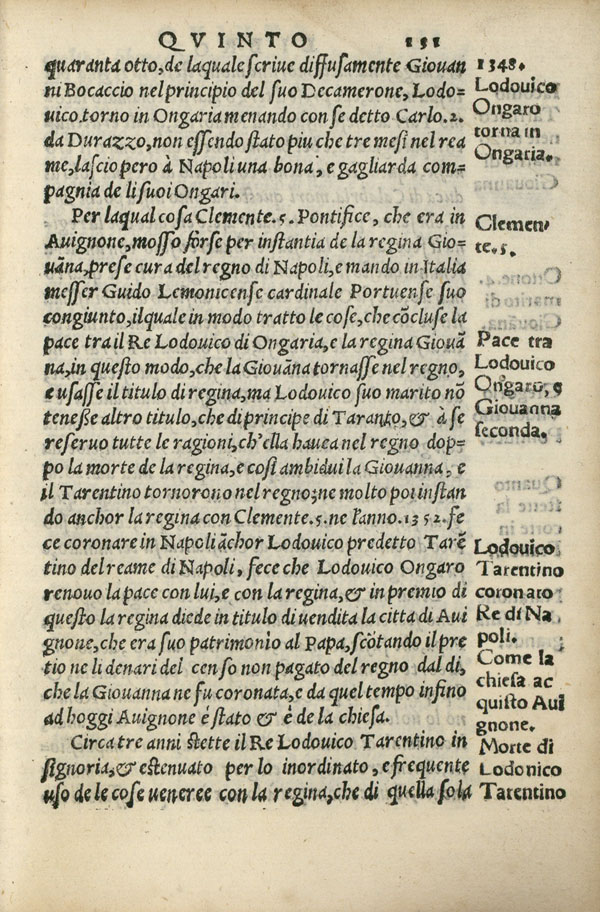 QVINTO 191
quaranta otto, de laquale scriue diffusamente Giouan
ni Bocaccio nel principio del suo Decamerone, Lodo-
uico torno in Ongaria menando con se detto Carlo.2.
da Durazzo, non essendo stato piu che tre mesi nel rea
me, lascio pero à Napoli una bona, e gagliarda com-
pagnia de li suoi Ongari.
Per laqual cosa Clemente.5. Pontifice, che era in
Auignone, mosso forse per instantia de la regina Gio-
uãna, prese cura del regno di Napoli, e mando in Italia
messer Guido Lemonicense cardinale Portuense suo
congiunto, ilquale in modo tratto le cose, che cõcluse la
pace tra il Re Lodouico di Ongaria, e la regina Giouã
na, in questo modo, che la Giouãna tornasse nel regno,
e usasse il titulo di regina, ma Lodouico suo marito nõ
tenesse altro titulo, che di principe di Taranto, & à se
reseruo tutte le ragioni, ch'ella hauea nel regno dop-
po la morte de la regina, e cosi ambidui la Giouanna, e
il Tarentino tornorono nel regno; ne molto poi instan
do anchor la regina con Clemente.5. ne l'anno.1352. fe
ce coronare in Napoli ãchor Lodouico predetto Tarẽ
tino del reame di Napoli, fece che Lodouico Ongaro
renouo la pace con lui, e con la regina, & in premio di
questo la regina diede in titulo di uendita la citta di Aui
gnone, che era suo patrimonio al Papa, scõtando il pre
tio ne li denari del censo non pagato del regno dal di,
che la Giouanna ne fu coronata, e da quel tempo infino
ad hoggi Auignone è stato & è de la chiesa.
Circa tre anni stette il Re Lodouico Tarentino in
signoria, & estenuato per lo inordinato, e frequente
uso de le cose ueneree con la regina, che di quella sola
1348.
Lodouico
Ongaro
torna in
Ongaria.
Clemen-
te.5.
Pace tra
Lodouico
Ongaro, e
Giouanna
seconda.
Lodouico
Tarentino
coronato
Re di Na
poli.
Come la
chiesa ac
quisto Aui
gnone.
Morte di
Lodonico
Tarentino